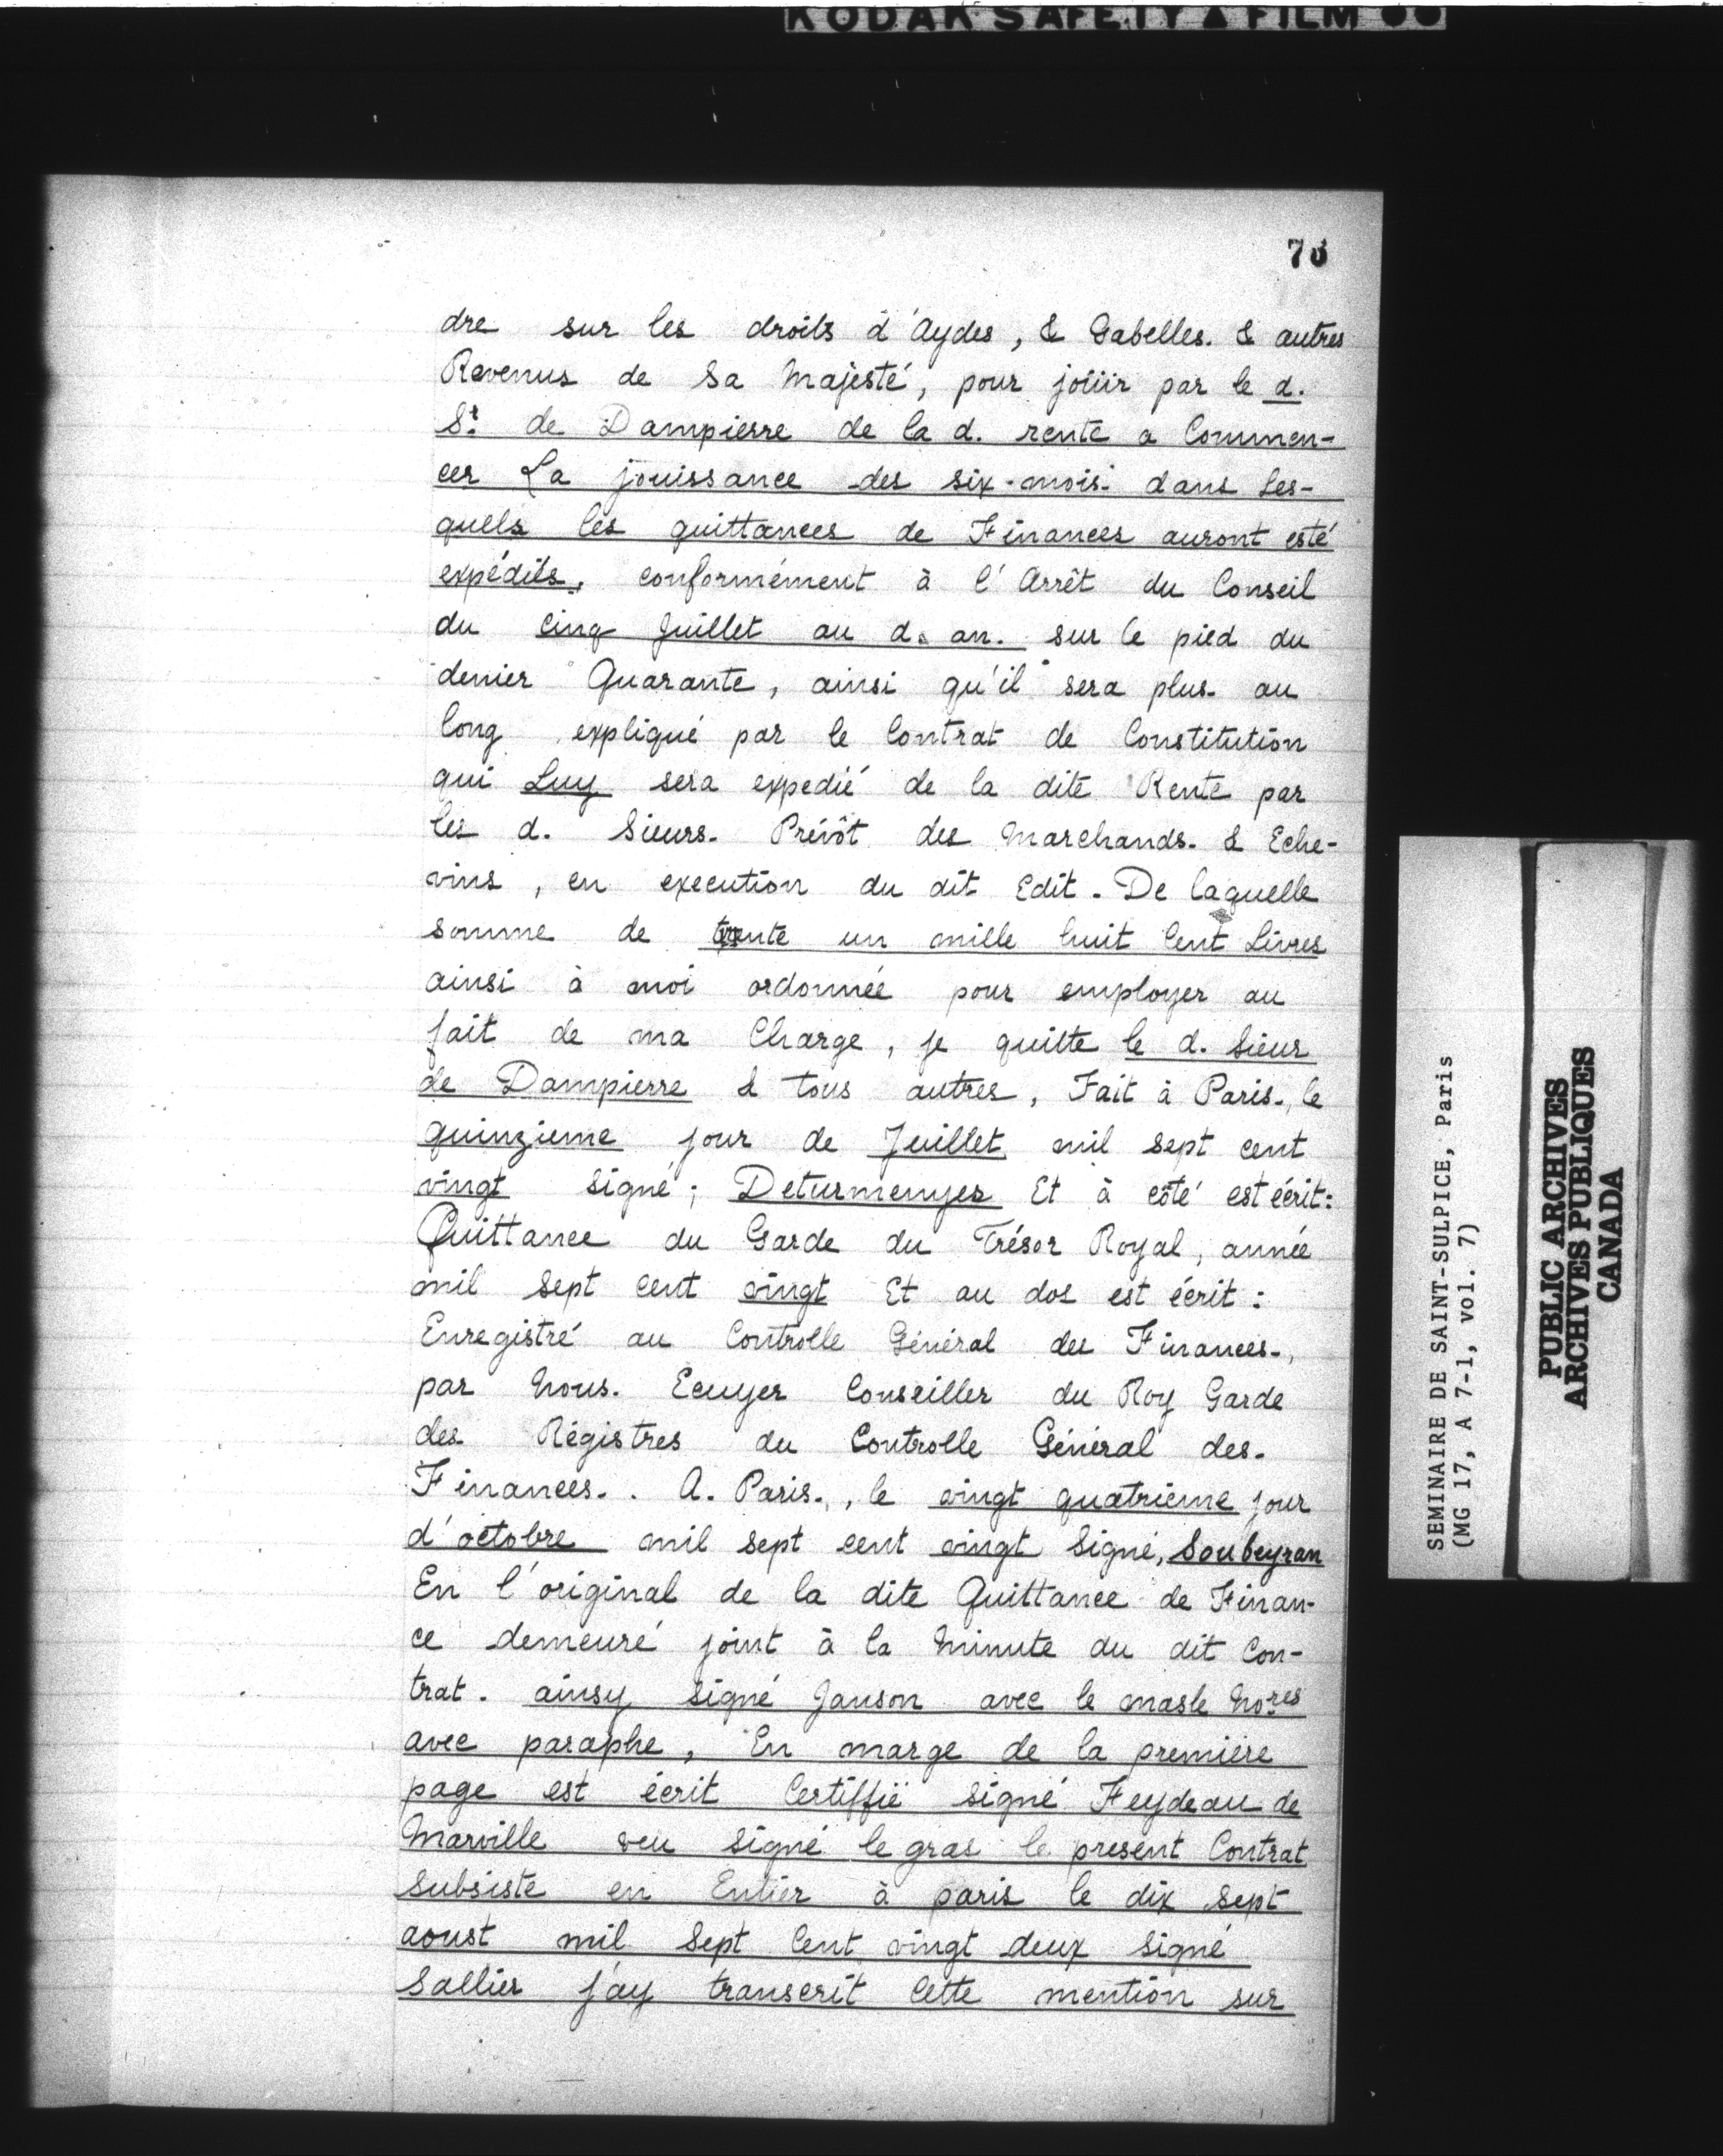 KODAK SAFETY ▲ FILM ●●
dre sur les droits d'Aydes, & Gabelles. & autres
Revenus de Sa Majesté, pour joüir par le d.
St. de Dampierre de la d. rente a Commen-
cer La jouissance des six-mois. dans les-
quels les quittances de Finances auront esté
expédits, conformément à l'Arrêt du Conseil
du cinq Juillet au d. an. sur le pied du
denier Quarante, ainsi qu'il sera plus au
long expliqué par le Contrat de Constitution
qui Luy sera expedié de la dite Rente par
les d. Sieurs. Prévôt des Marchands. & Eche-
vins, en execution du dit Edit. De laquelle
somme de trente un mille huit Cent Livres
ainsi à moi ordonnée pour employer au
fait de ma Charge, je quitte le d. Sieur
de Dampierre & tous autres, Fait à Paris., le
quinzieme jour de Juillet mil sept cent
vingt signé; Deturmenyes Et à côté est écrit:
Quittance du Garde du Trésor Royal, année
mil sept cent vingt Et au dos est écrit:
Enregistré au Controlle Général des Finances.,
par Nous. Ecuyer Conseiller du Roy Garde
des Régistres du Controlle Général des.
Finances.. A. Paris., le vingt quatrieme jour
d'octobre mil sept cent vingt Signé, Soubeyran
En l'original de la dite Quittance de Finan-
ce demeuré joint à la Minute du dit Con-
trat. ainsy signé Janson avec le masle No.res
avec paraphe, En marge de la première
page est écrit Certiffié signé Feydeau de
Marville veu signé le gras le present Contrat
Subsiste en Entier à paris le dix sept
aoust mil Sept Cent vingt deux signé
Sallier j'ay transcrit Cette mention sur
SEMINAIRE DE SAINT-SULPICE, Paris
(MG 17, A 7-1, vol. 7)
PUBLIC ARCHIVES
ARCHIVES PUBLIQUES
CANADA